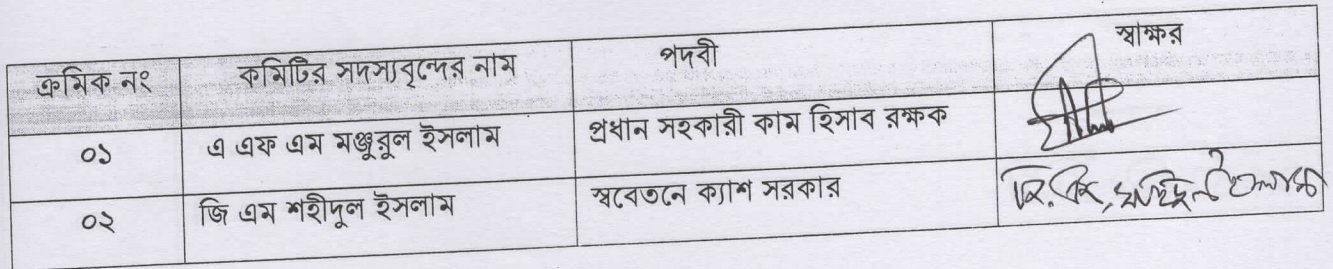 ক্রমিক নং কমিটির সদস্যবৃন্দের নাম পদবী স্বাক্ষর
০১ এ এফ এম মঞ্জুরুল ইসলাম প্রধান সহকারী কাম হিসাব রক্ষক
০২ জি এম শহীদুল ইসলাম স্ববেতনে ক্যাশ সরকার